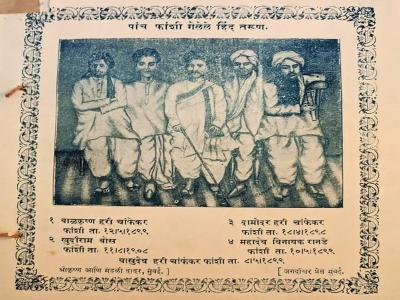 पांच फांशी गेलेले हिंद तरुण.
१ बाळकृष्ण हरी चांफेकर
फांशी ता. १२।५।१८९९
२ खुदीराम बोस
फांशी ता. ११।८।१९०८
३ दामोदर हरी चांफेकर
फांशी ता. १८।४।१८९८
४ महादेव विनायक रानडे
फांशी ता. १०।५।१८९९
वासुदेव हरी चांफेकर फांशी ता. ८।५।१८९९
श्रीकृष्ण आणि मंडळी दादर, मुंबई. ] [ जगदीश्वर प्रेस मुंबई.